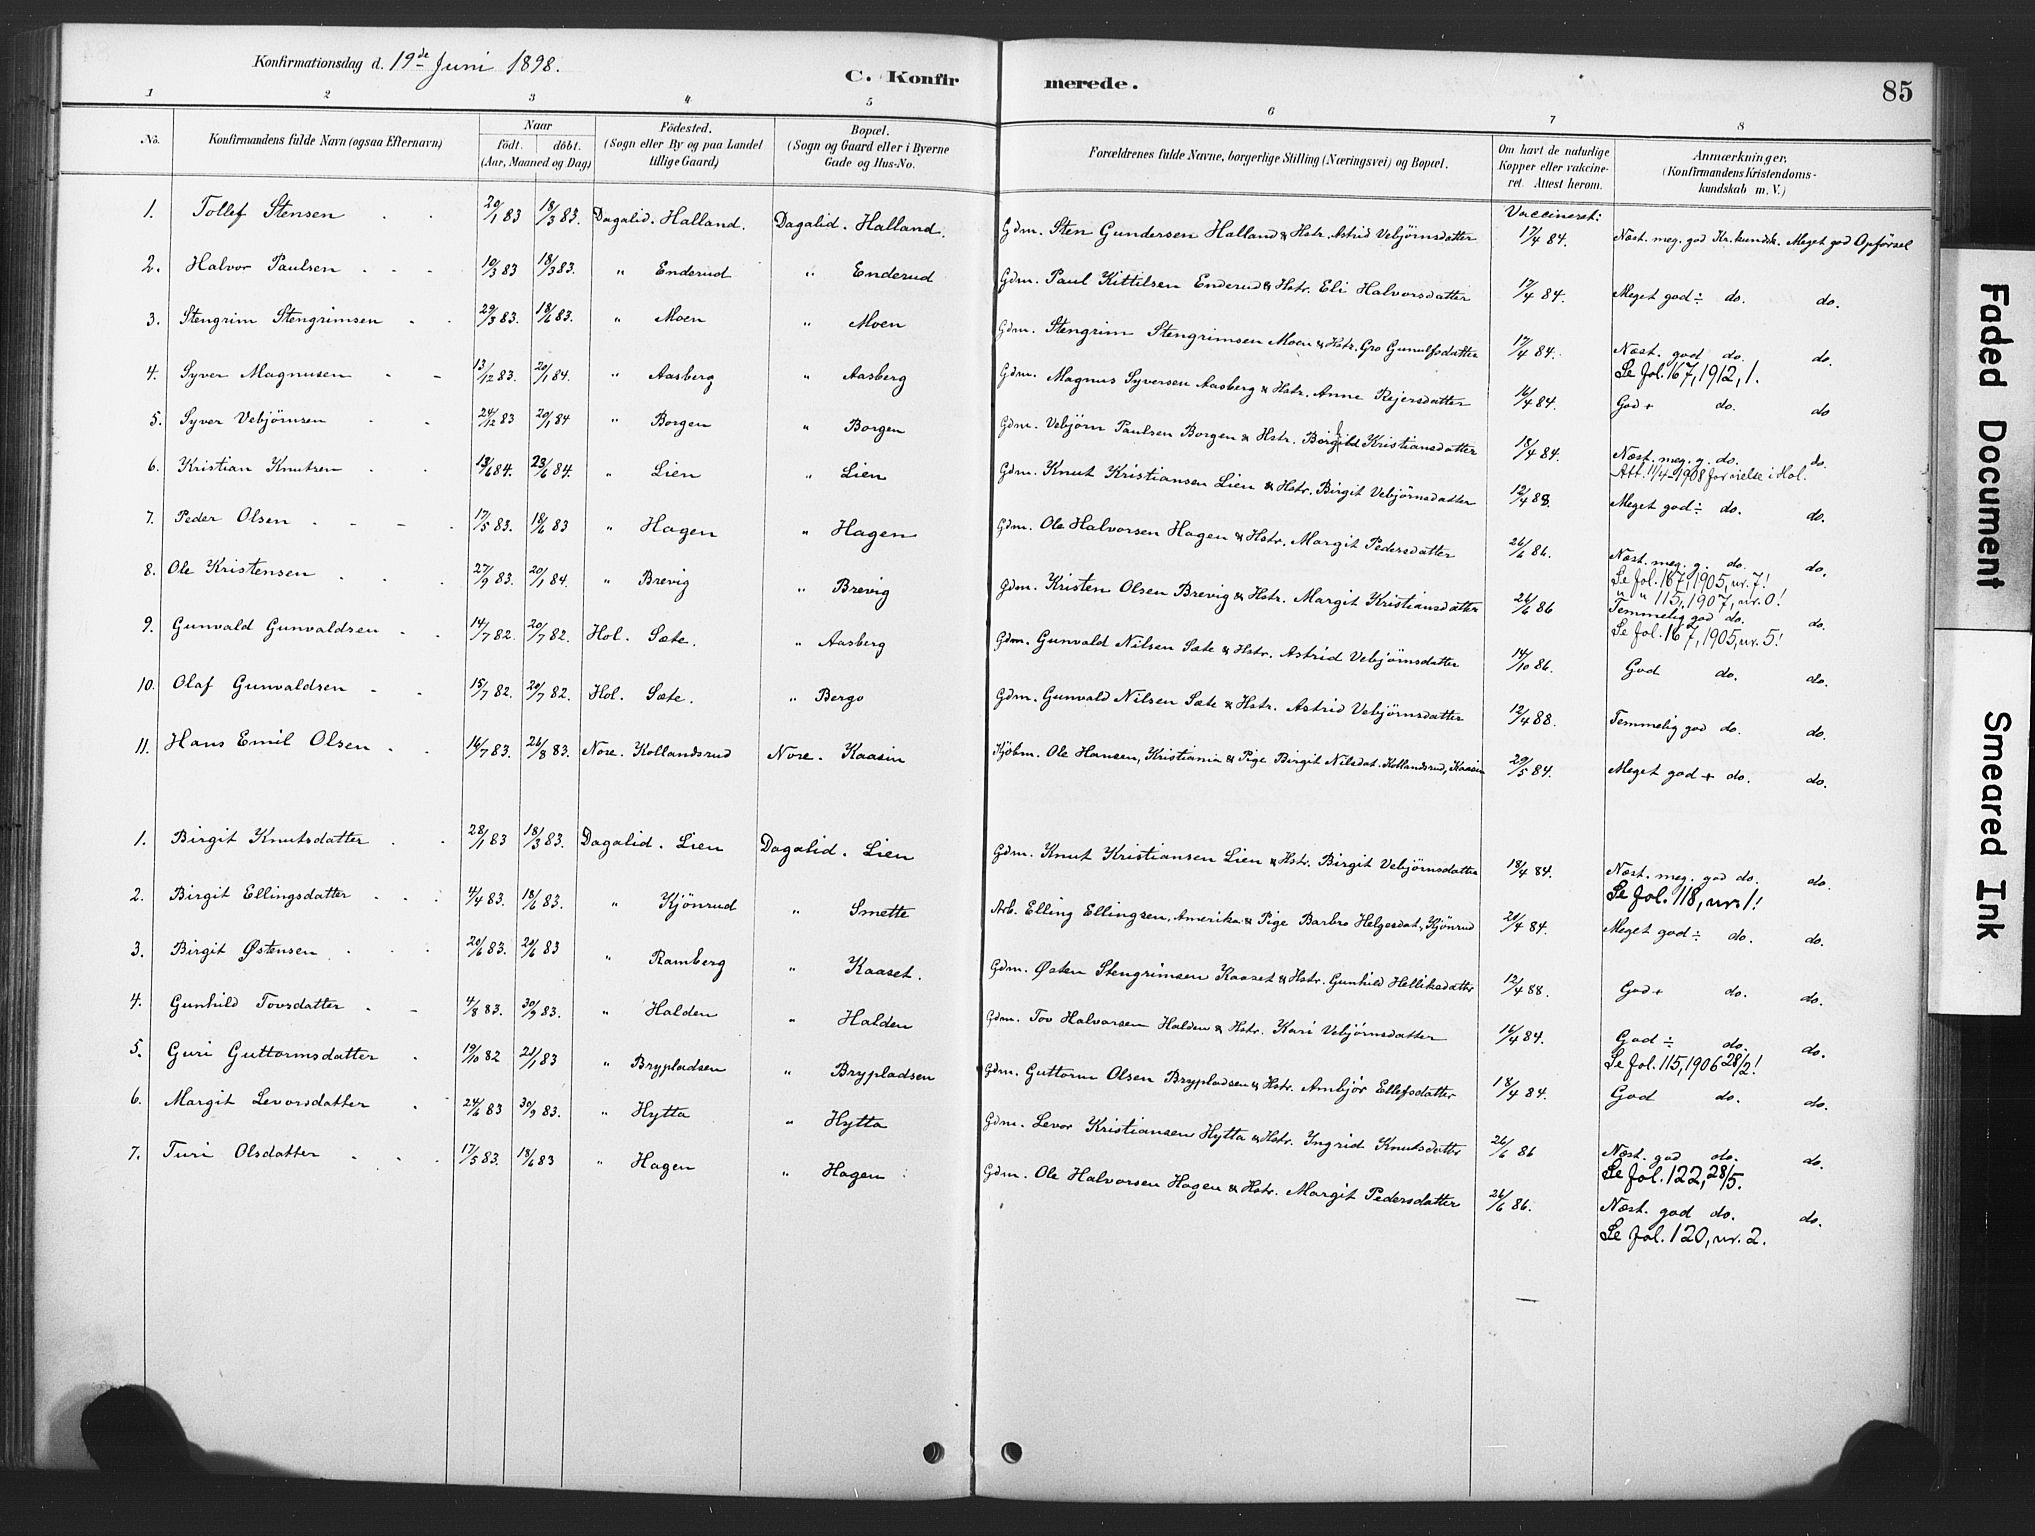 Konfirmationsdag d. 19de Juni 1898.
C. Konfirmerede.
85
1 2 3 4 5 6 7 8
No. Konfirmandens fulde Navn (ogsaa Efternavn) Naar födt. döbt. (Aar, Maaned og Dag) Födested. (Sogn eller By og paa Landet tillige Gaard) Bopæl. (Sogn og Gaard eller i Byerne Gade og Hus-No. Forældrenes fulde Navne, borgerlige Stilling (Næringsvei) og Bopæl. Om havt de naturlige Kopper eller vakcineret. Attest herom. Anmærkninger. (Konfirmandens Kristendomskundskab m. V.)
Vaccineret:
1. Tollef Stensen 20/1 83 18/3 83. Dagalid. Halland. Dagalid. Halland. Gdm. Sten Gundersen Halland & Hstr. Astrid Vebjörnsdatter 17/4 84. Næst. meg. god Kr. kundsk. Meget god Opførsel
2. Halvor Paulsen 10/3 83 18/3 83. " Enderud " Enderud Gdm. Paul Kittilsen Enderud & Hstr. Eli Halvorsdatter 17/4 84. Meget god ÷ do. do.
3. Stengrim Stengrimsen 29/3 83. 18/6 83. " Moen " Moen Gdm. Stengrim Stengrimsen Moen & Hstr. Gro Gunulfsdatter 17/4 84. Næst. god do. do.
Se fol. 167, 1912, 1.
4. Syver Magnusen 13/12 83. 20/1 84. " Aasberg " Aasberg Gdm. Magnus Syversen Aasberg & Hstr. Anne Rejersdatter 16/4 84. God + do. do
5. Syver Vebjörnsen 24/12 83 20/1 84 " Borgen " Borgen Gdm. Vebjörn Paulsen Borgen & Hstr. Borgild Kristiansdatter 18/4 84. Næst. meg. g. do. do.
Att. 11/4-1908 for vielse i Hol.
6. Kristian Knutsen 13/6 84. 23/6 84. " Lien " Lien Gdm. Knut Kristiansen Lien & Hstr. Birgit Vebjörnsdatter 12/4 88. Meget god ÷ do. do.
7. Peder Olsen 17/5 83. 18/6 83 " Hagen " Hagen Gdm. Ole Halvorsen Hagen & Hstr. Margit Pedersdatter 26/6 86. Næst. meg. g. do. do.
Se fol. 167, 1905, nr. 7!
" " 115, 1907, nr. 0!
8. Ole Kristensen 27/9 83. 20/1 84. " Brevig " Brevig Gdm. Kristen Olsen Brevig & Hstr. Margit Kristiansdatter 26/6 86 Temmelig god do. do.
Se fol. 167, 1905, nr. 5!
9. Gunvald Gunvaldsen 14/7 82. 20/7 82. Hol. Sæte. " Aasberg Gdm. Gunvald Nilsen Sæte & Hstr. Astrid Vebjörnsdatter 14/10 86. God do. do.
10. Olaf Gunvaldsen 15/7 82. 20/7 82. Hol. Sæte. " Bergo Gdm. Gunvald Nilsen Sæte & Hstr. Astrid Vebjörnsdatter 12/4 88. Temmelig god do. do.
11. Hans Emil Olsen 16/7 83. 26/8 83. Nore. Kollandsrud Nore. Kaasin Kjöbm. Ole Hansen, Kristiania & Pige Birgit Nilsdat. Kollandsrud, Kaasin 20/5 84. Meget god + do. do.
1. Birgit Knutsdatter 28/1 83 18/3 83. Dagalid. Lien Dagalid. Lien Gdm. Knut Kristiansen Lien & Hstr. Birgit Vebjörnsdatter 18/4 84. Næst. meg. god do. do.
Se fol. 118, nr. 1!
2. Birgit Ellingsdatter 4/4 83. 18/6 83. " Kjönrud " Smette Arb. Elling Ellingsen, Amerika & Pige Barbro Helgesdat., Kjönrud 20/4 84. Meget god ÷ do. do.
3. Birgit Østensen 20/6 83. 20/6 83 " Ramberg " Kaaset. Gdm. Østen Stengrimsen Kaaset & Hstr. Gunhild Helliksdatter 12/4 88. God + do. do.
4. Gunhild Tovsdatter 4/8 83. 30/9 83. " Halden " Halden Gdm. Tov Halvorsen Halden & Hstr. Kari Vebjörnsdatter 16/4 84. God ÷ do. do.
Se fol. 115, 1906 28/2!
5. Guri Guttormsdatter 19/10 82 21/1 83 " Brypladsen " Brypladsen Gdm. Guttorm Olsen Brypladsen & Hstr. Ambjör Ellefsdatter 18/4 84. God do. do.
6. Margit Levorsdatter 24/6 83 30/9 83. " Hytta " Hytta Gdm. Levor Kristiansen Hytta & Hstr. Ingrid Knutsdatter 26/6 86 Næst. god do. do.
Se fol. 122, 28/5.
7. Turi Olsdatter 17/5 83. 18/6 83 " Hagen " Hagen Gdm. Ole Halvorsen Hagen & Hstr. Margit Pedersdatter 26/6 86. Næst. god do. do.
Se fol. 120, nr. 2.
Faded Document
Smeared Ink